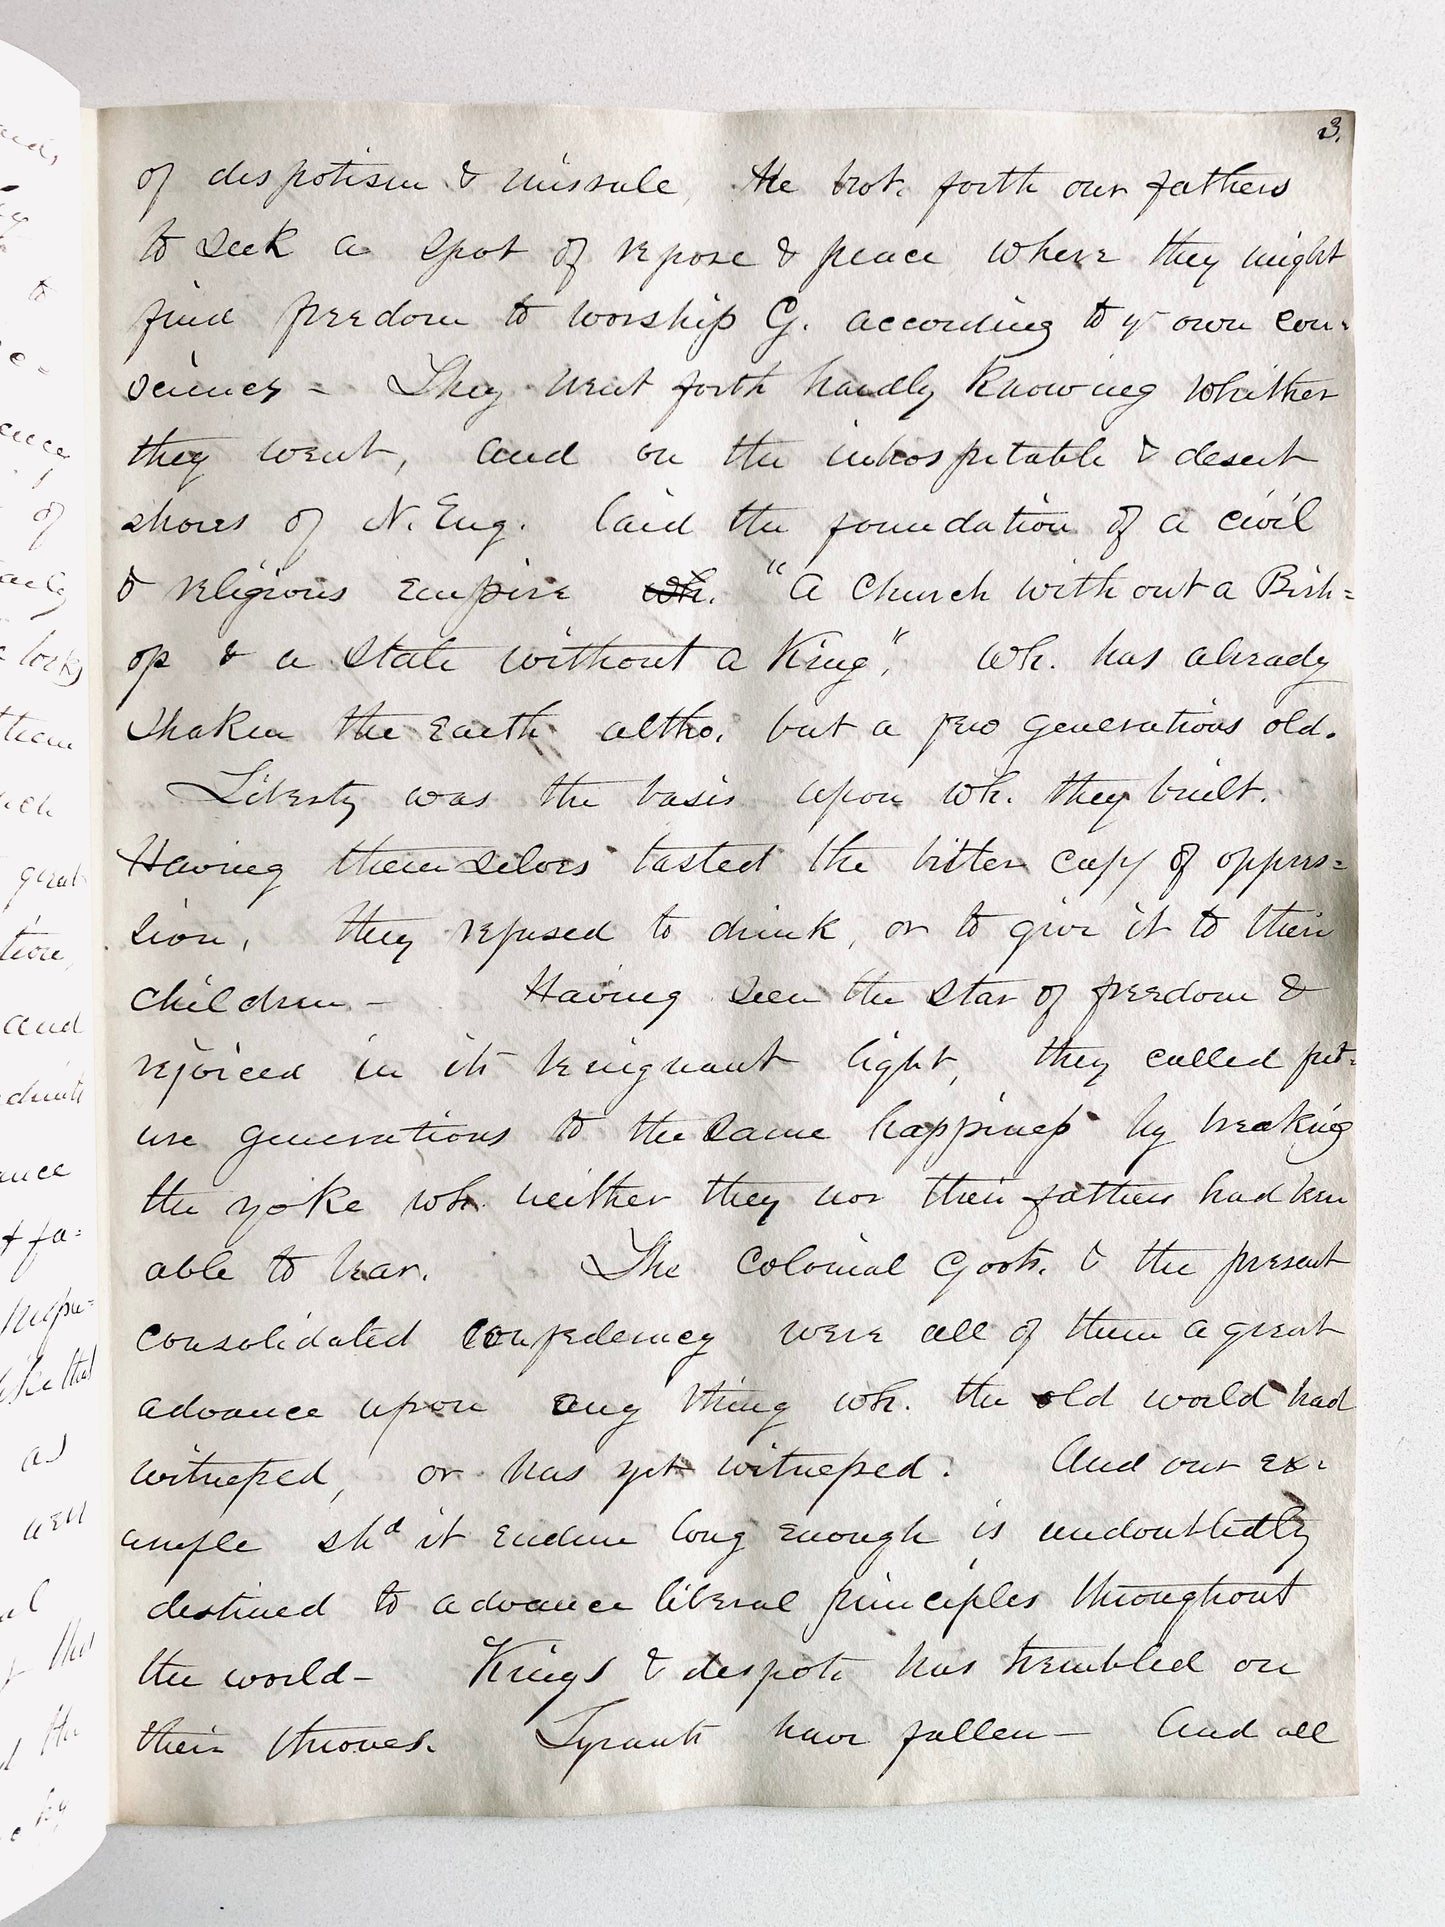 3.
of despotism & misrule, He brot. forth our fathers
to seek a spot of repose & peace where they might
find freedom to worship G. according to yr own con=
science - They went forth hardly knowing whither
they went, and on the inhospitable & desert
shores of N. Eng. laid the foundation of a civil
& religious Empire wh. "a Church without a Bish=
op & a State without a King", wh. has already
shaken the Earth altho. but a few generations old.
Liberty was the basis upon wh. they built.
Having themselves tasted the bitter cup of oppres=
sion, they refused to drink, or to give it to their
children - Having seen the star of freedom &
rejoiced in its benignant light, they called fut=
ure generations to the same happiness by breaking
the yoke wh. neither they nor their fathers had been
able to bear. The Colonial Govts. & the present
consolidated confederacy were all of them a great
advance upon any thing wh. the old world had
witnessed, or has yet witnessed. And our ex=
ample shd it endure long enough is undoubtedly
destined to advance liberal principles throughout
the world - Kings & despots has trembled on
their thrones. Tyrants have fallen - And all